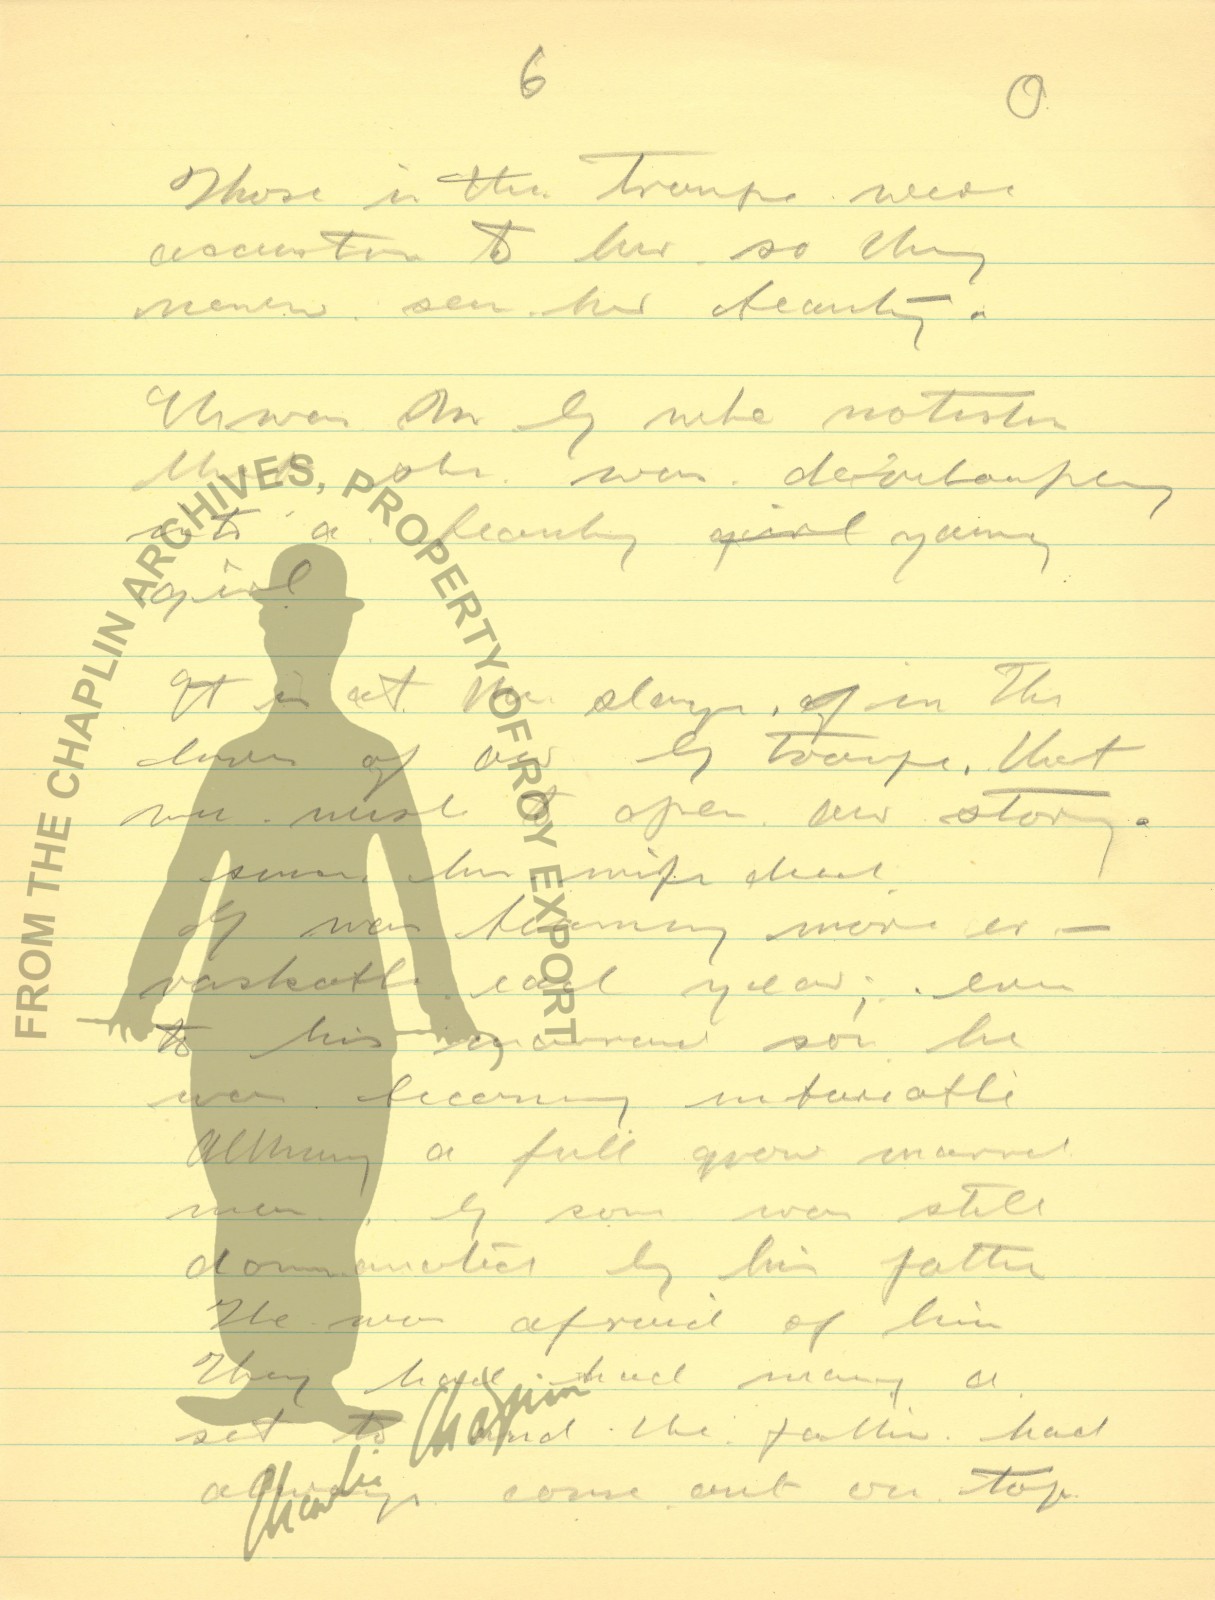 6
O
Those in the troupe were
accustom to her so they
never seen her beauty.
It was Mr G who
that she was
into a beauty girl young
girl
It is at the stage, of in the
lives of our G troupe, that
we wish to open our story.
since his wife died
G was becoming more er -
each year; even
to his married son he
was becoming
Although a full grown married
man, G son was still
dominated by his father
He was afraid of him
They have had many a
set to and the father had
always come out on top
FROM THE CHAPLIN ARCHIVES, PROPERTY OF ROY EXPORT
Charlie Chaplin